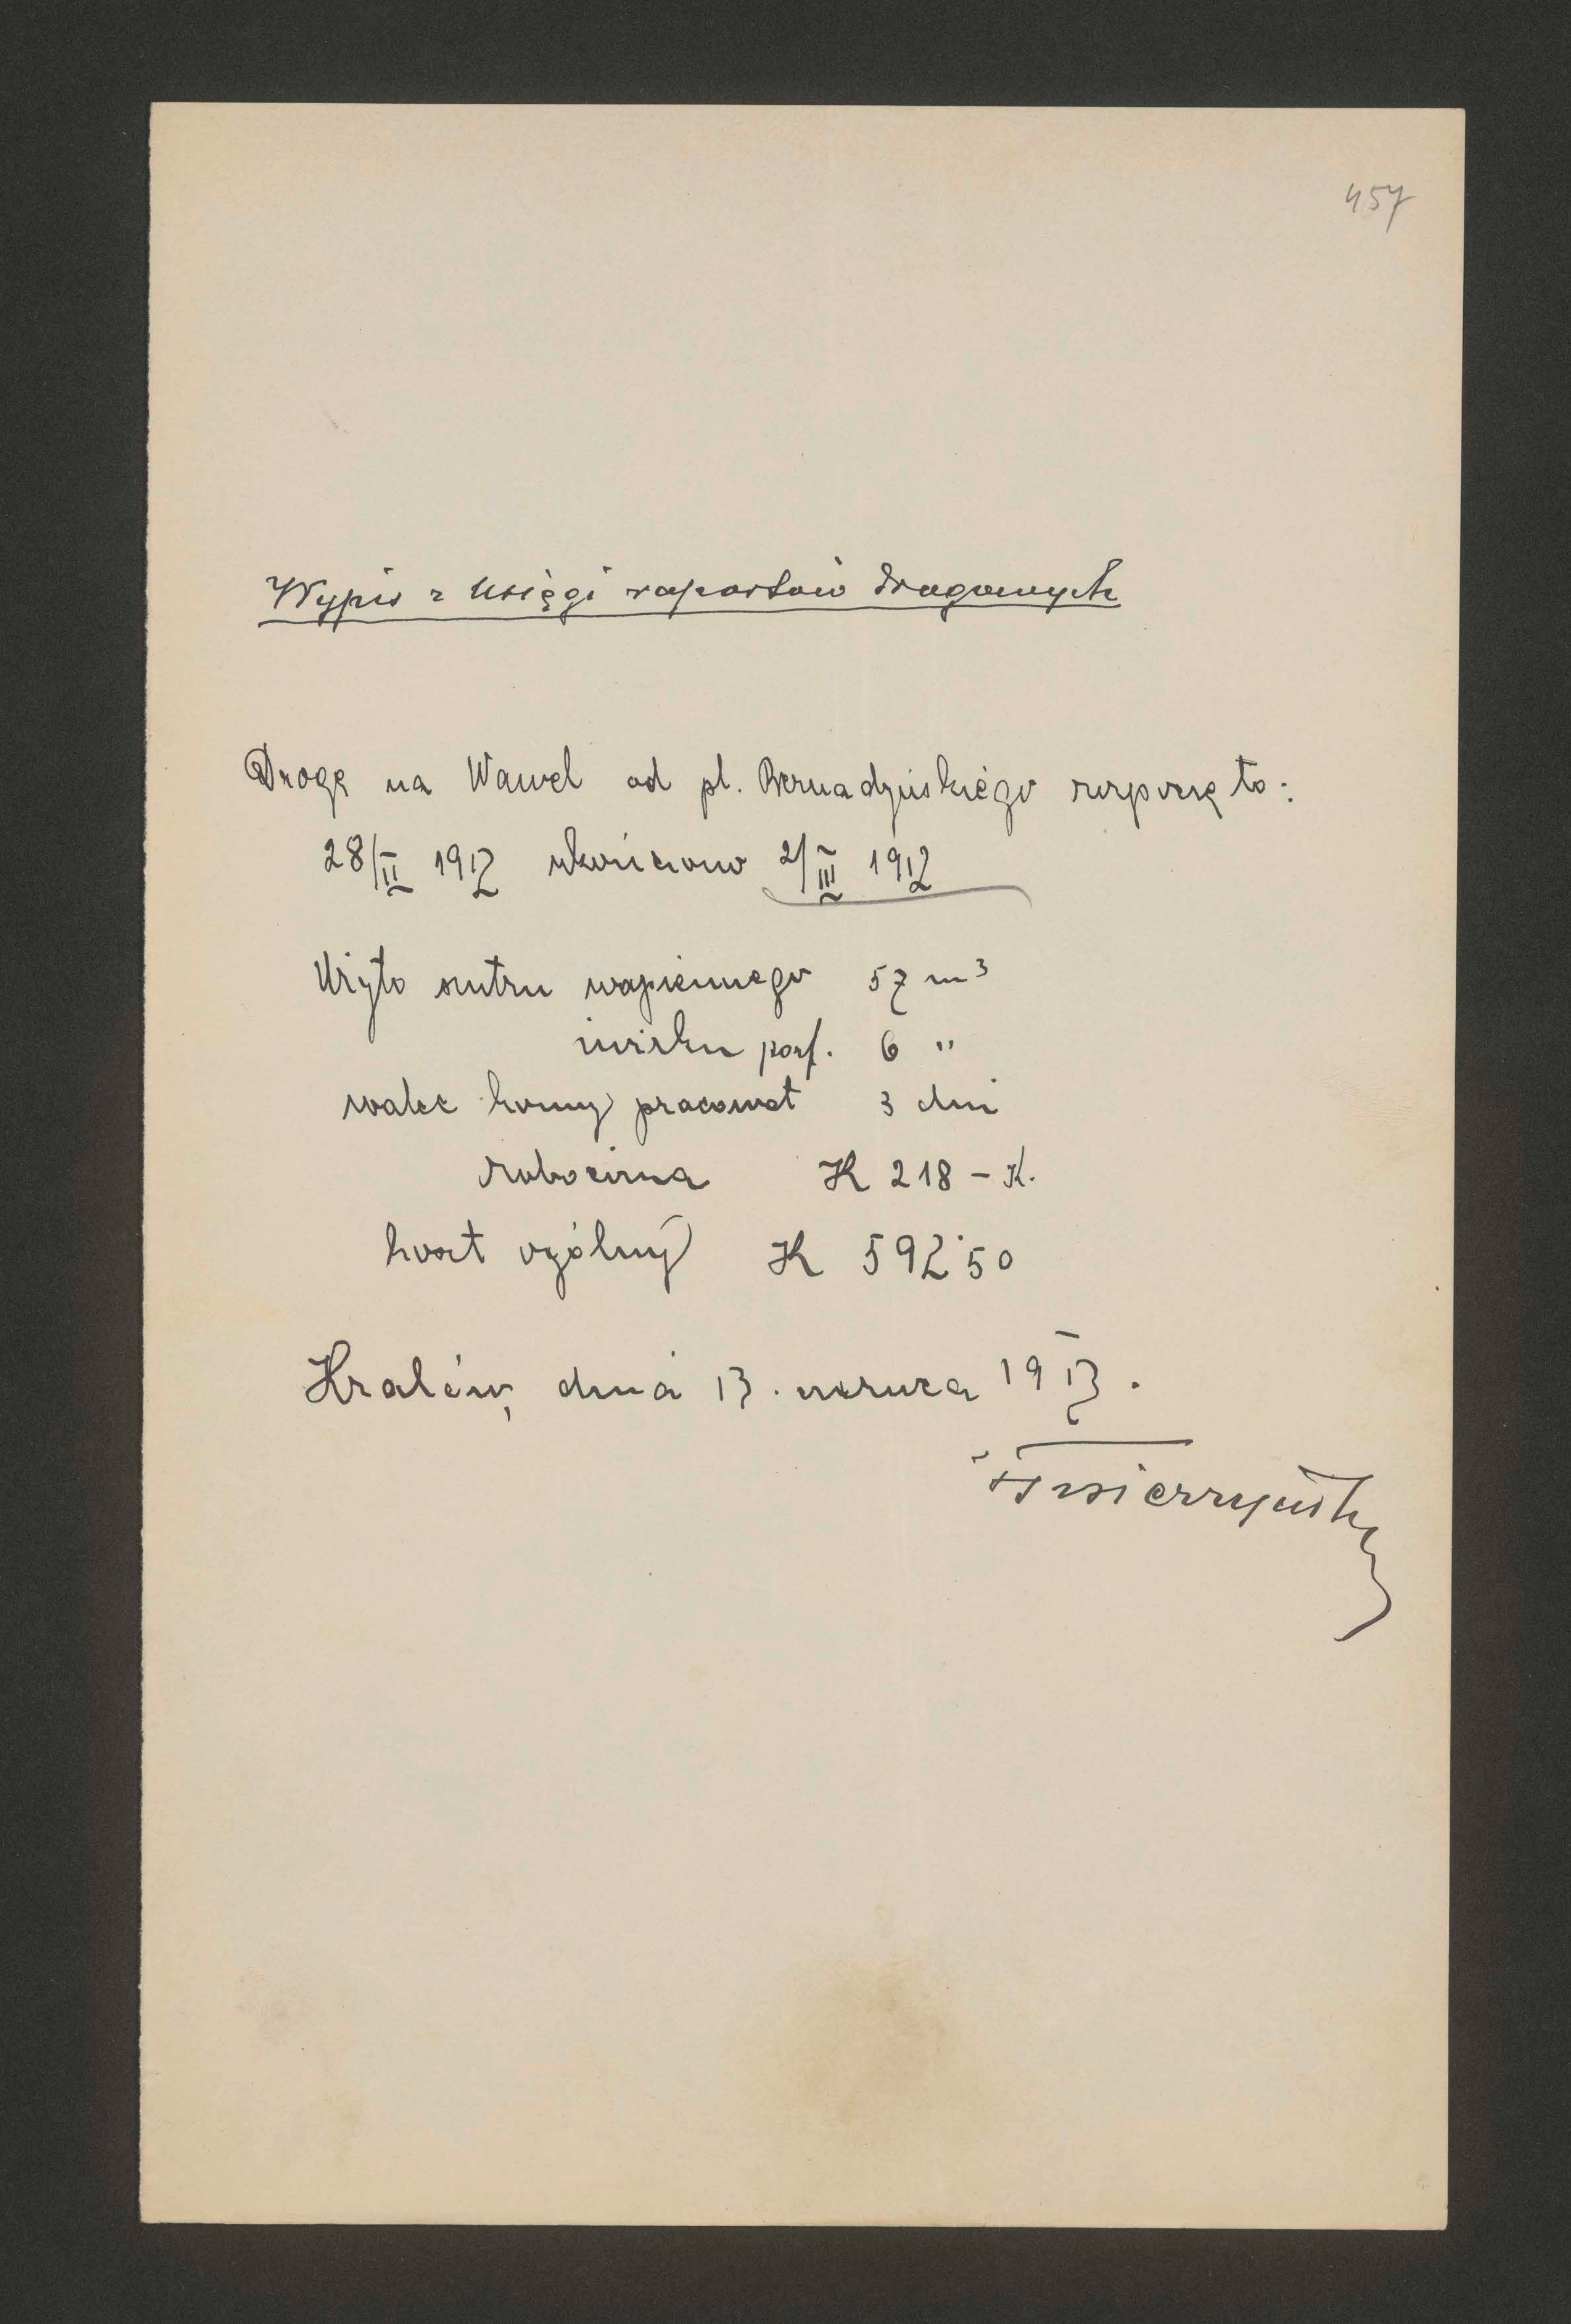 457
Wypis z księgi raportów drogowych
Drogę na Wawel od pl. Bernadyńskiego rozpoczęto:
28/II 1912 ukończono 2/III 1912
Użyto szutru wapiennego 57 m³
żwirku porf. 6 "
walec konny pracował 3 dni
robocizna K 218 – K.
koszt ogólny K 592·50
Kraków, dnia 13. czerwca 1913.